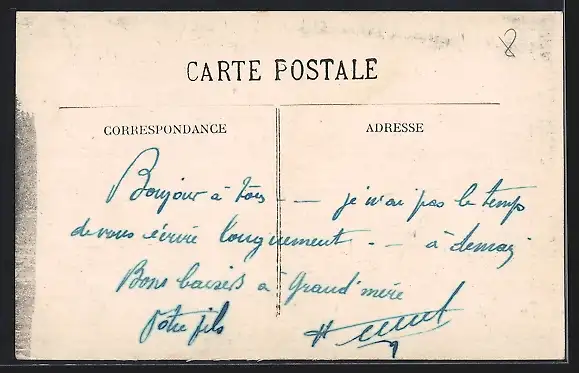 8
CARTE POSTALE
CORRESPONDANCE
ADRESSE
Bonjour à tous - — je n'ai pas le temps
de vous écrire longuement - - à demain
Bons baisers à Grand'mère
Votre fils